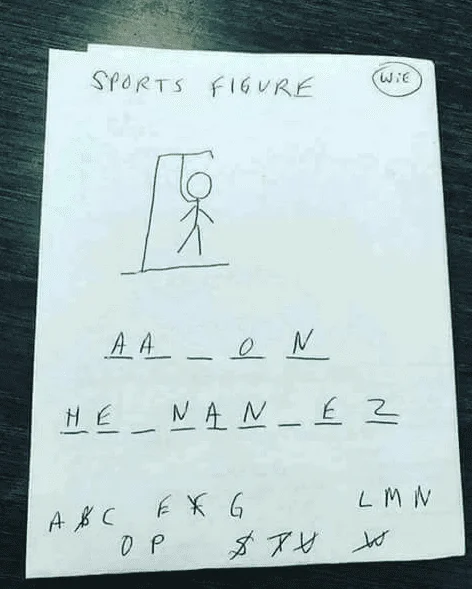 SPORTS FIGURE WiE
AA_ON
HE_NAN_EZ
A B C E F G L M N
O P S T U W